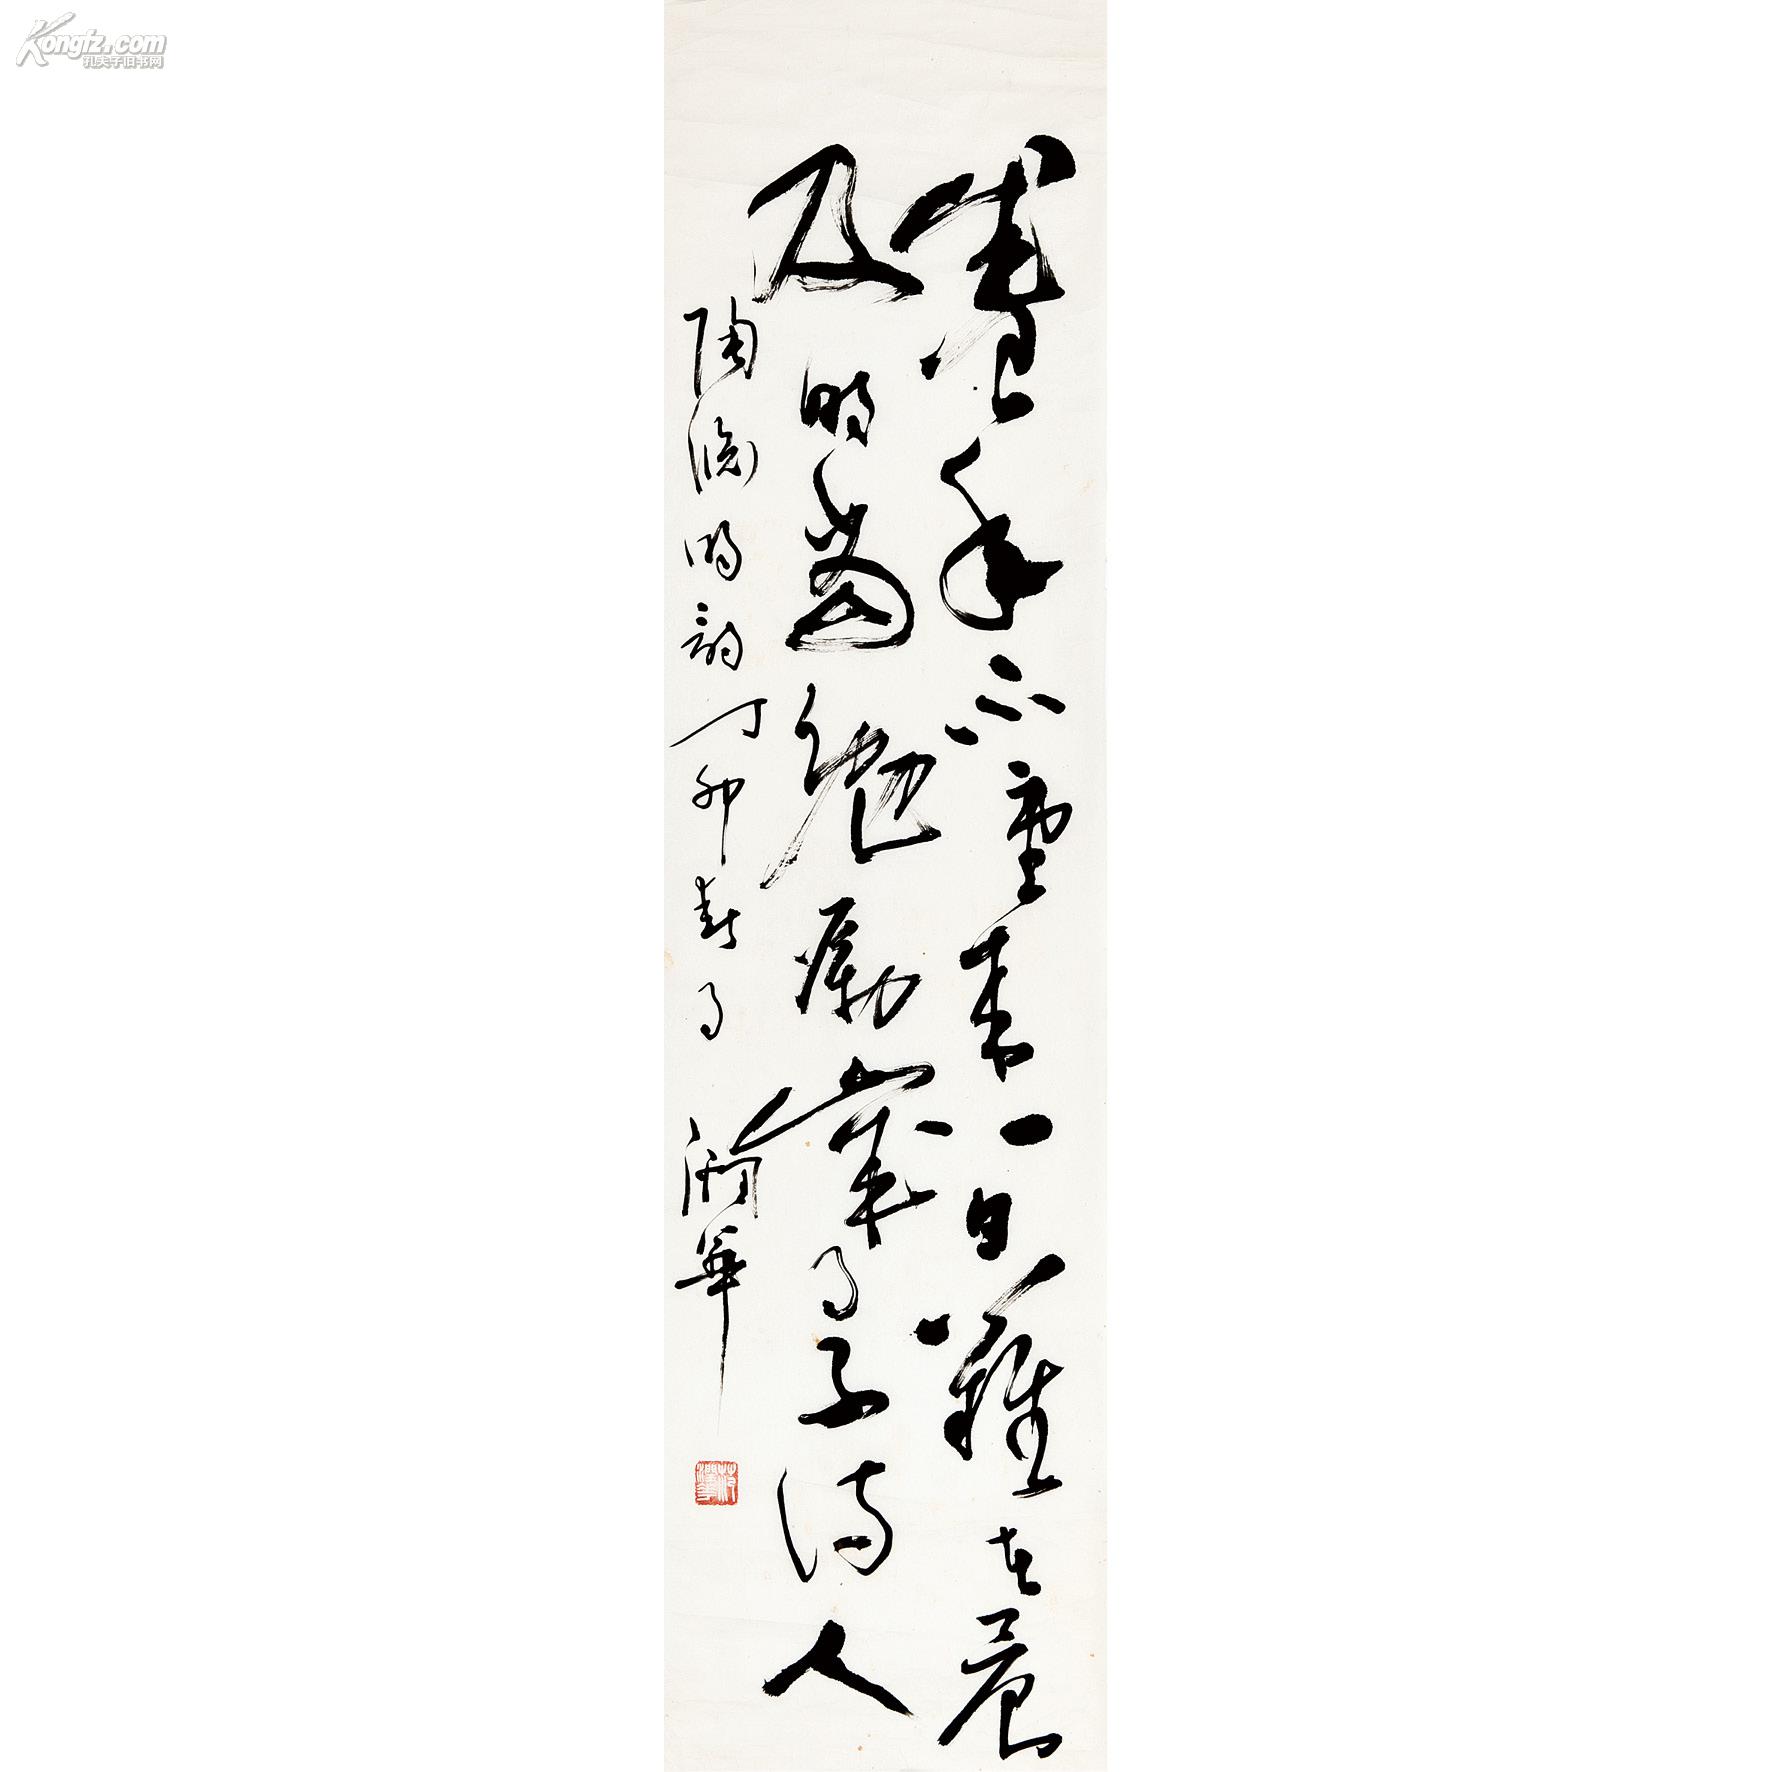 盛年不重来一日难在晨
及时当勉励岁月不待人
陶渊明韵丁卯春月
华
Kongfz.com
孔夫子旧书网